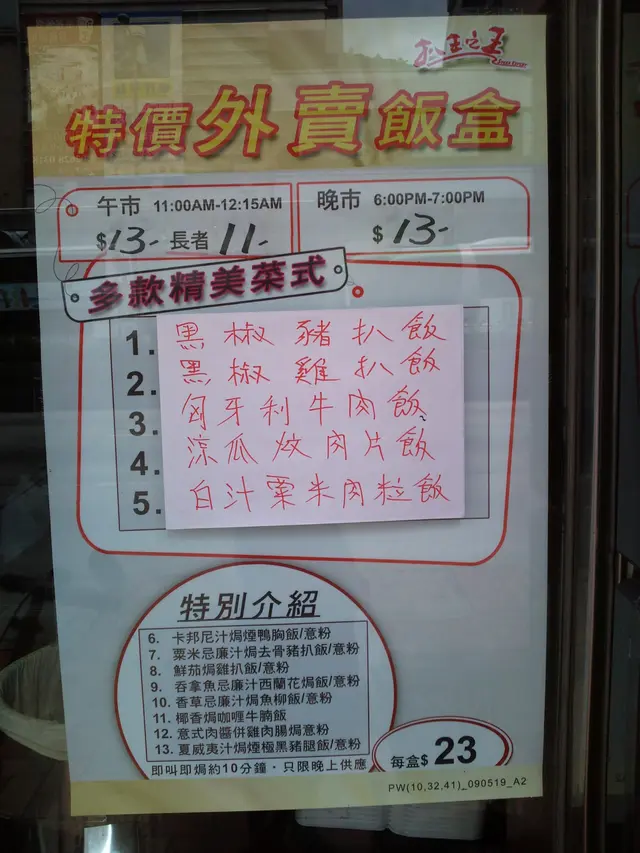 扒王之王
特價外賣飯盒
午市 11:00AM-12:15AM
$13- 長者 11-
晚市 6:00PM-7:00PM
$ 13-
多款精美菜式
1. 黑椒豬扒飯
2. 黑椒雞扒飯
3. 匈牙利牛肉飯
4. 涼瓜炆肉片飯
5. 白汁粟米肉粒飯
特別介紹
6. 卡邦尼汁焗煙鴨胸飯/意粉
7. 粟米忌廉汁焗去骨豬扒飯/意粉
8. 鮮茄焗雞扒飯/意粉
9. 吞拿魚忌廉汁西蘭花焗飯/意粉
10. 香草忌廉汁焗魚柳飯/意粉
11. 椰香焗咖喱牛腩飯
12. 意式肉醬併雞肉腸焗意粉
13. 夏威夷汁焗煙極黑豬腿飯/意粉
即叫即焗約10分鐘·只限晚上供應
每盒$ 23
PW(10,32,41)_090519_A2